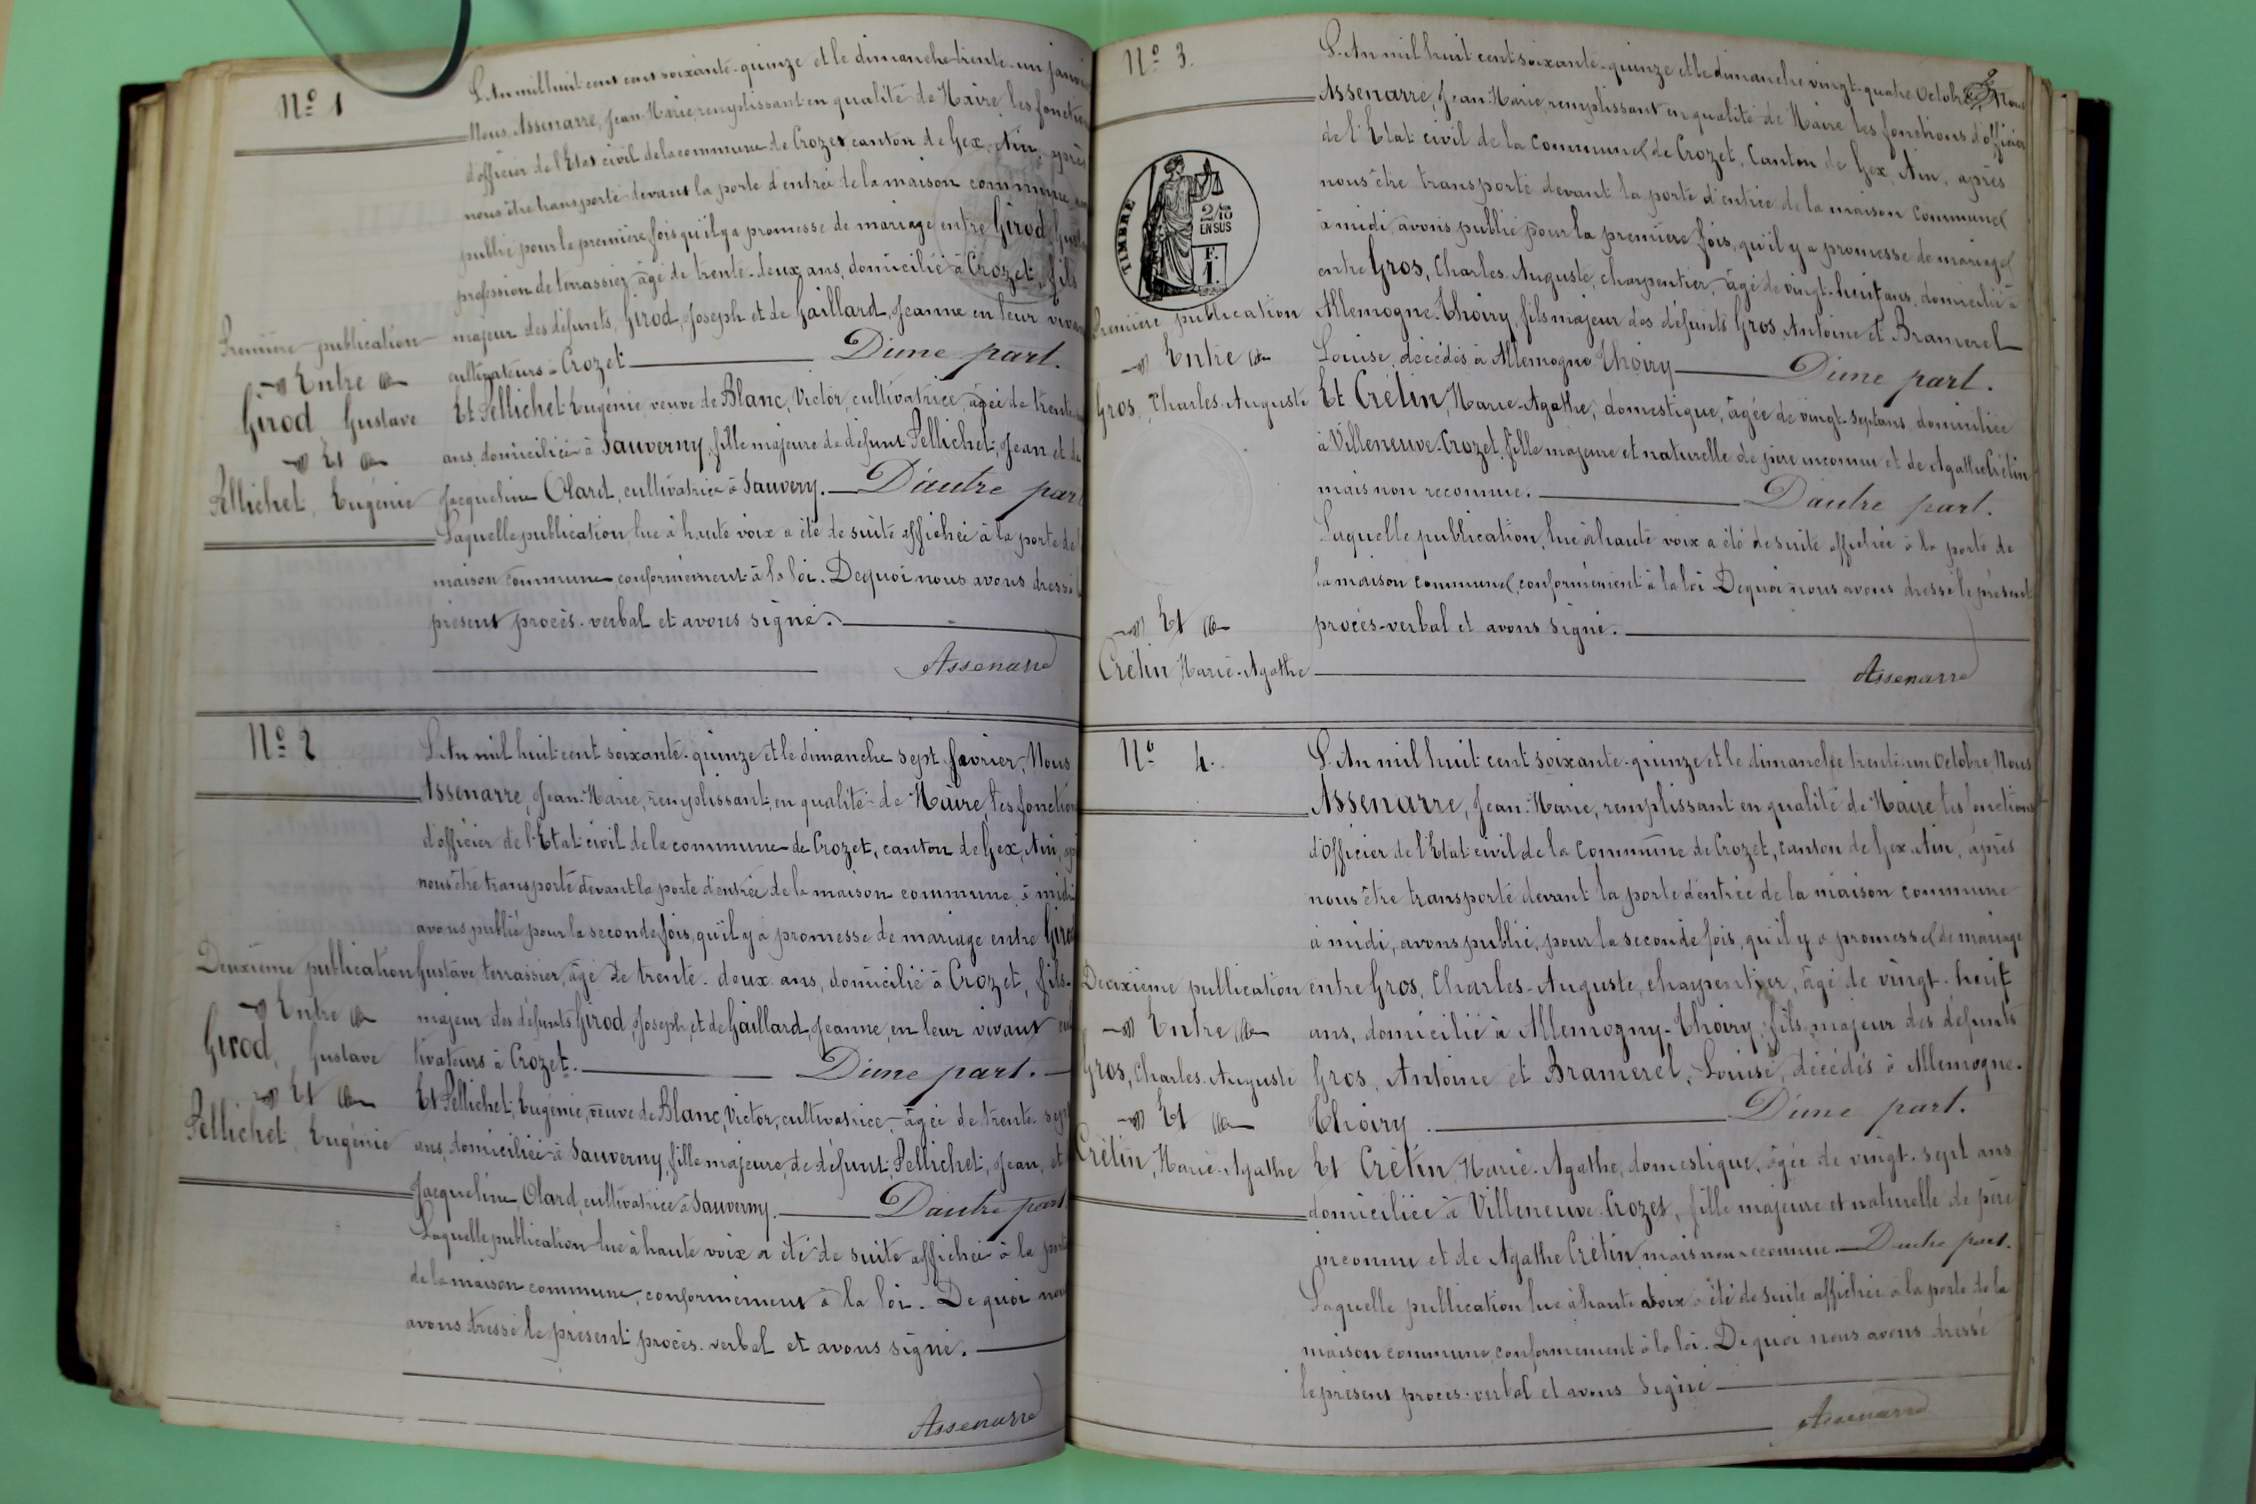 Nº 1
L'An mil huit cent cent soixante-quinze et le dimanche trente-un janvier
Nous Assenarre, Jean-Marie, remplissant en qualité de Maire les fonctions
d'officier de l'Etat civil de la commune de Crozet canton de Gex, Ain, après
nous être transporté devant la porte d'entrée de la maison commune,
publié pour la première fois qu'il y a promesse de mariage entre Girod
profession de terrassier, âgé de trente-deux ans, domicilié à Crozet, fils
majeur des défunts, Girod, Joseph et de Gaillard, Jeanne en leur vivant
cultivateurs à Crozet D'une part.
Et Pellichet Eugénie, veuve de Blanc, Victor, cultivatrice, âgée de trente
ans, domiciliée à Sauverny, fille majeure de défunt Pellichet, Jean et de
Jacqueline Olard, cultivatrice à Sauvery. D'autre part
Laquelle publication, lue à haute voix a été de suite affichée à la porte de
maison commune conformément à la loi. De quoi nous avons dressé
présent procès-verbal et avons signé.
Assenarre
Première publication
Entre
Girod Gustave
Et
Pellichet, Eugénie
Nº 2
L'An mil huit cent soixante-quinze et le dimanche sept février, Nous
Assenarre, Jean-Marie, remplissant, en qualité de Maire, les fonctions
d'officier de l'Etat civil de la commune de Crozet, canton de Gex, Ain,
nous être transporté devant la porte d'entrée de la maison commune, à midi
avons publié pour la seconde fois, qu'il y a promesse de mariage entre Girod
Gustave, terrassier, âgé de trente-deux ans, domicilié à Crozet, fils
majeur des défunts Girod, Joseph, et de Gaillard, Jeanne, en leur vivant cul
tivateurs à Crozet. D'une part.
Et Pellichet, Eugénie, veuve de Blanc, Victor, cultivatrice, âgée de trente-sept
ans, domiciliée à Sauverny, fille majeure, de défunt, Pellichet, Jean, et
Jacqueline Olard, cultivatrice à Sauverny. D'autre part
Laquelle publication lue à haute voix a été de suite affichée à la porte
de la maison commune, conformément à la loi. De quoi nous
avons dressé le présent procès-verbal et avons signé.
Assenarre
Deuxième publication
Entre
Girod, Gustave
Et
Pellichet, Eugénie
Nº 3.
2
L'An mil huit cent soixante-quinze et le dimanche vingt-quatre Octobre, Nous
Assenarre, Jean-Marie, remplissant en qualité de Maire les fonctions d'officier
de l'Etat civil de la commune de Crozet, Canton de Gex, Ain, après
nous être transporté devant la porte d'entrée de la maison commune
à midi, avons publié pour la première fois, qu'il y a promesse de mariage
entre Gros, Charles-Auguste, charpentier, âgé de vingt-huit ans, domicilié à
Allemogne-Thoiry, fils majeur des défunts Gros, Antoine et Bramerel
Louise, décédés à Allemogne Thoiry D'une part.
Et Crétin, Marie-Agathe, domestique, âgée de vingt-sept ans, domiciliée
à Villeneuve-Crozet, fille majeure et naturelle de père inconnu et de Agathe Crétin
mais non reconnue. D'autre part.
Laquelle publication, lue à haute voix a été de suite affichée à la porte de
la maison commune, conformément à la loi. De quoi nous avons dressé le présent
procès-verbal et avons signé.
Assenarre
TIMBRE
2/10
EN SUS
F.
1.
Première publication
Entre
Gros, Charles-Auguste
Et
Crétin, Marie-Agathe
Nº 4.
L'An mil huit cent soixante-quinze et le dimanche trente-un Octobre, Nous
Assenarre, Jean-Marie, remplissant en qualité de Maire les fonctions
d'Officier de l'Etat civil de la Commune de Crozet, canton de Gex, Ain, après
nous être transporté devant la porte d'entrée de la maison commune
à midi, avons publié, pour la seconde fois, qu'il y a promesse de mariage
entre Gros, Charles-Auguste, charpentier, âgé de vingt-huit
ans, domicilié à Allemogny-Thoiry, fils majeur des défunts
Gros, Antoine et Bramerel, Louise, décédés à Allemogne-
Thoiry. D'une part.
Et Crétin, Marie-Agathe, domestique, âgée de vingt-sept ans
domiciliée à Villeneuve-Crozet, fille majeure et naturelle de père
inconnu et de Agathe Crétin, mais non reconnue. D'autre part.
Laquelle publication lue à haute voix a été de suite affichée à la porte de la
maison commune, conformément à la loi. De quoi nous avons dressé
le présent procès-verbal et avons signé
Assenarre
Deuxième publication
Entre
Gros, Charles-Auguste
Et
Crétin, Marie-Agathe